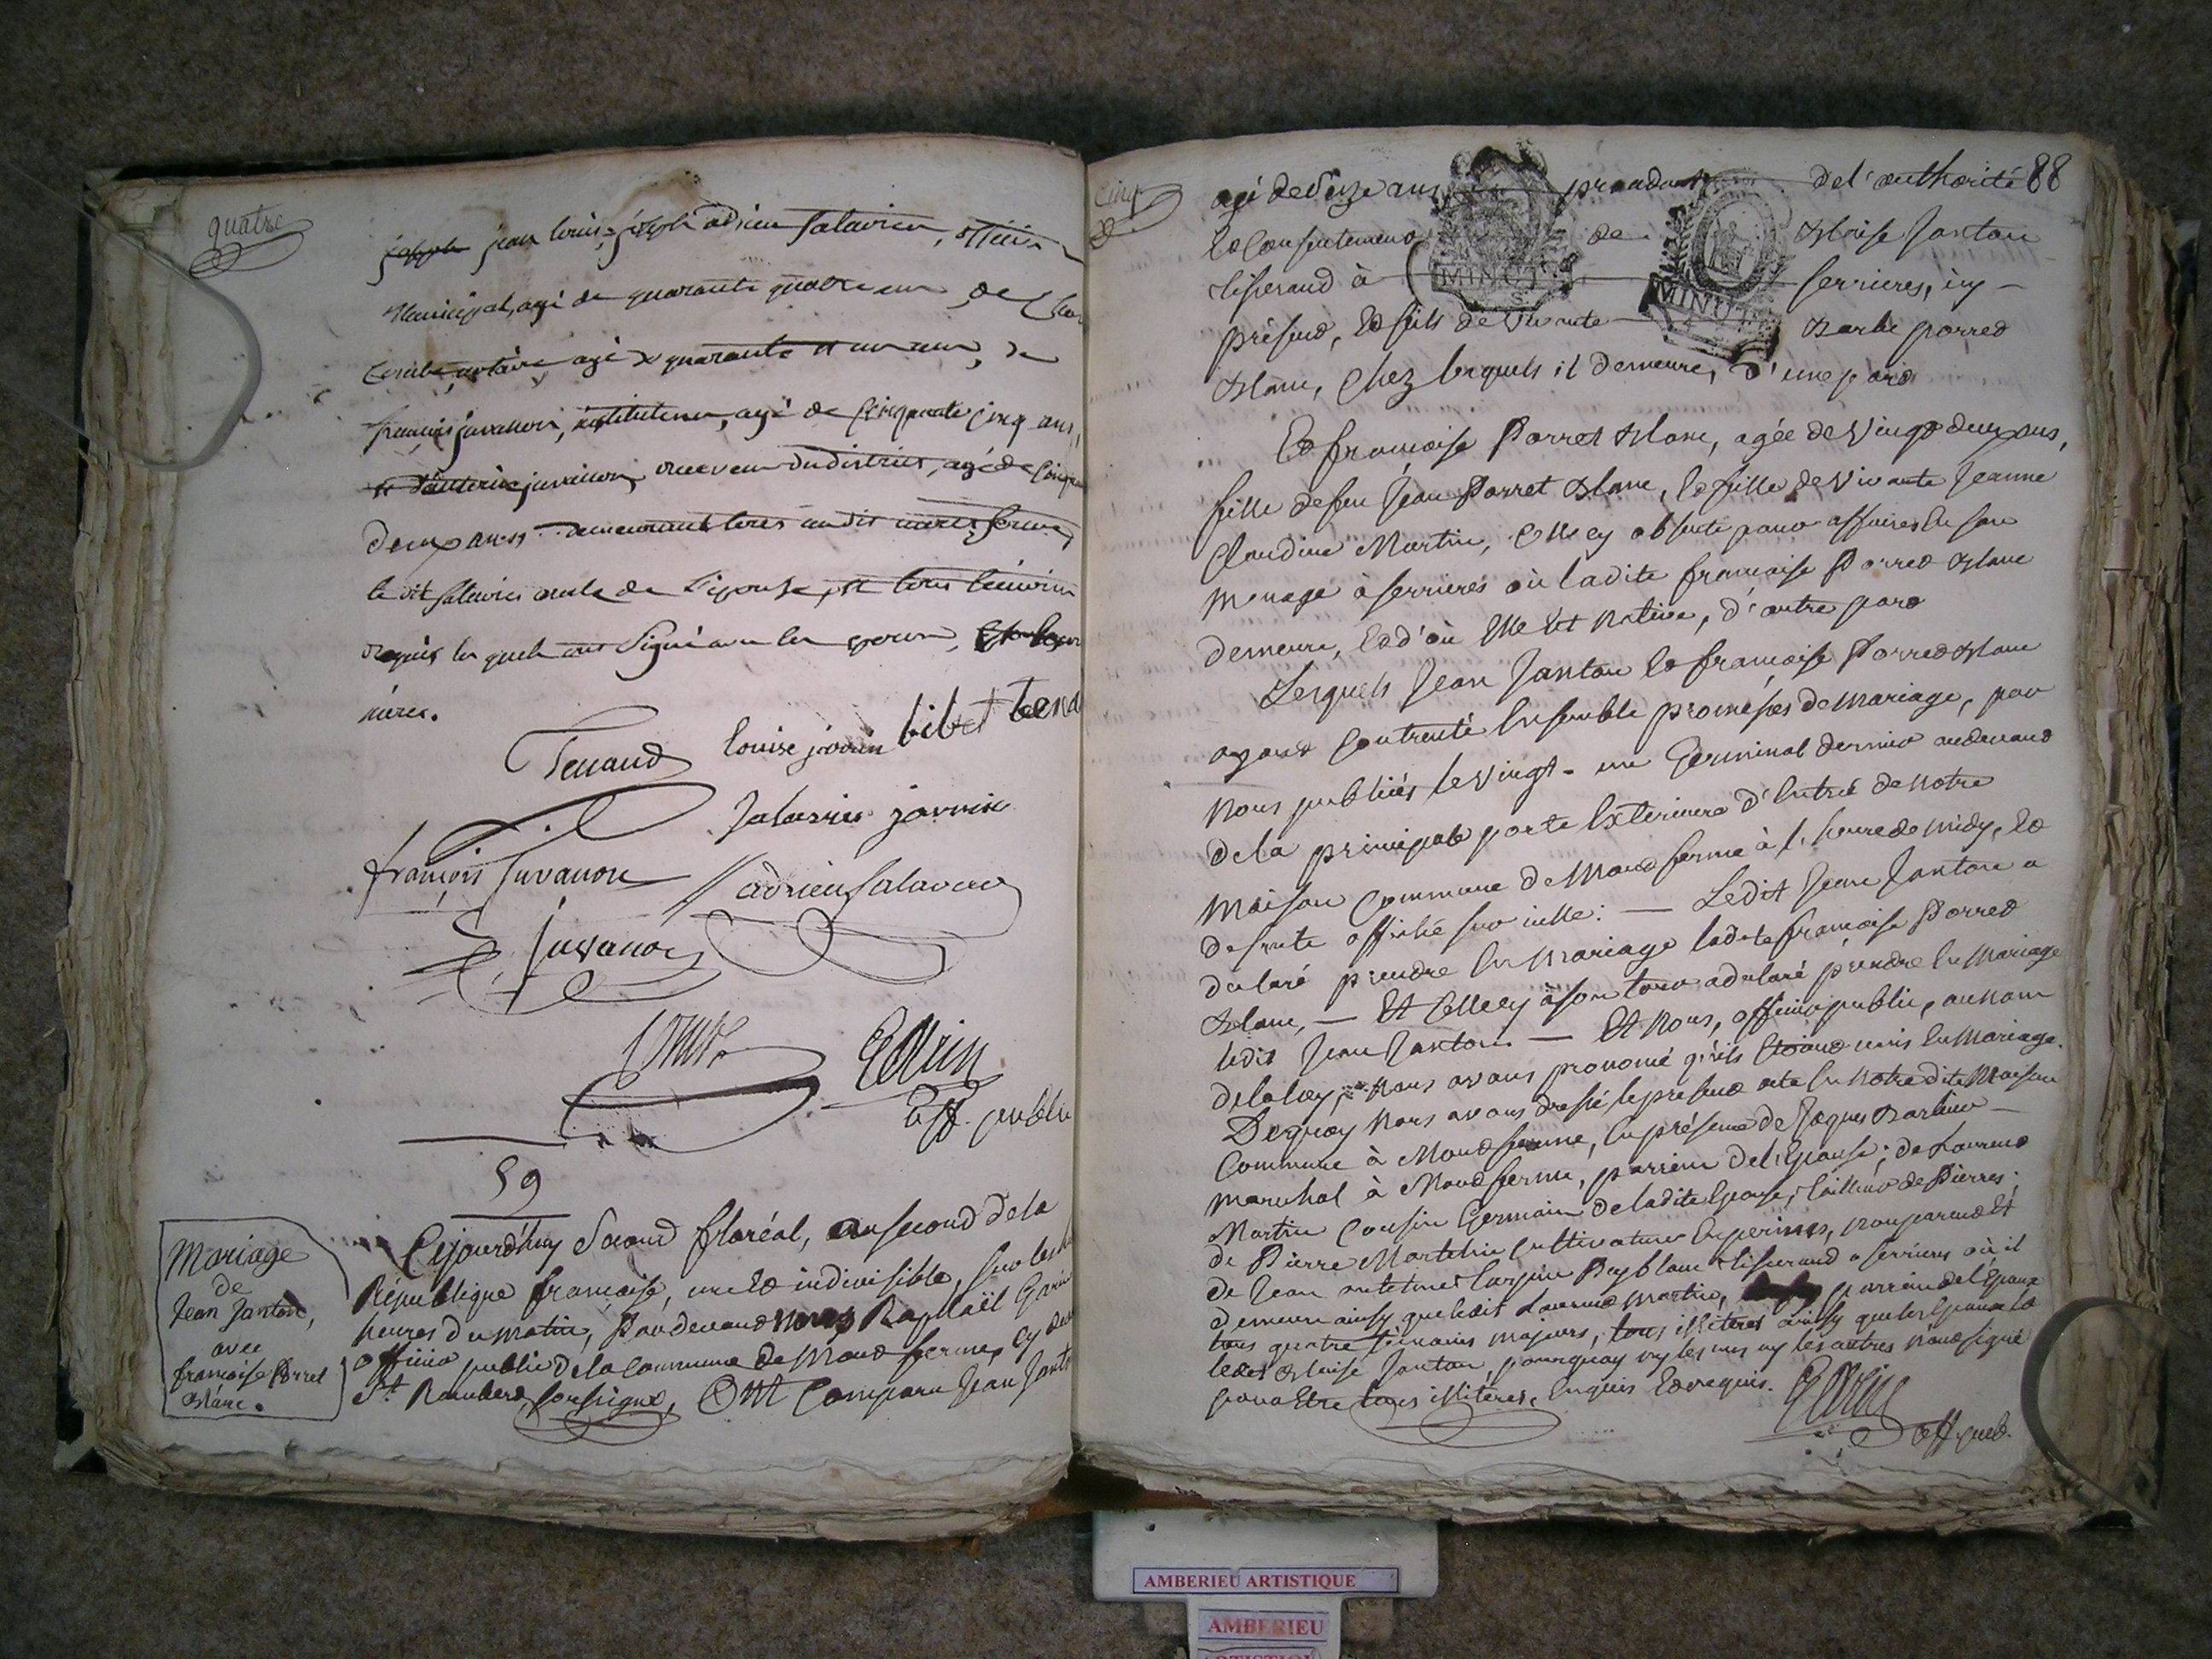 quatre
joseph jean louis joseph adrien salavier, officier
municipal, agé de quarante quatre ans, de
notaire agé de quarante et un ans, de
françois juvanon, instituteur, agé de cinquante cinq ans,
juvanon, receveur du district, agé de
deux ans demeurants tous audit montferme,
le dit salavier oncle de l'épouse, et tous témoins
requis lesquels ont signé avec les époux,
mères.
Tenand louise jarrin bibet tenand
Salavrier jarrin
françois Juvanon adrien salavrier
Juvanon
Grin
off. public
59
Mariage
de
Jean Janton,
avec
françoise Porret
blanc.
Cejourd'huy Second floréal, an second de la
République françoise, une et indivisible, sur les
heures du matin, Pardevant nous Raphaël
officier public de la Commune de Montferme, cy devant
St. Rambert, soussigné, Ont Comparu Jean Janton
Cinq
agé de seize ans prendant de l'authorité 88
et consentement de blaise Janton
tisserand à serrieres, icy
MINUTE
MINUTE
présent, et fils de vivante barbe porret
blanc, chez lesquels il demeure, d'une part
Et françoise Porret blanc, agée de vingt deux ans,
fille de feu Jean Porret blanc, et fille de vivante Jeanne
Claudine Martin, Celle cy absente pour affaires de son
menage à serrieres où ladite françoise Porret blanc
demeure, et d'où elle est native, d'autre part
Lesquels Jean Jantan et françoise Porret blanc
ayant contracté ensemble promesses de mariage, par
nous publiées le vingt-un Germinal dernier audevant
de la principale porte Exterieure d'Entrée de notre
Maison Commune de Montferme à l'heure de midy, et
de suite affiché sur icelle: — Ledit Jean Jantan a
declaré prendre En Mariage ladite françoise Porret
blanc, — Et Celle cy à son tour a déclaré prendre En Mariage
ledit Jean Jantan. — Et Nous, officier public, au nom
de la loy, nous avons prononcé qu'ils étoient unis En Mariage.
Dequoy Nous avons dressé le présent acte En notre dite Maison
Commune à Montferme, En présence de Jaques
marechal à Montferme, parrain de l'Epouse; de Laurent
Martin Cousin Germain de ladite Epouse, tailleur de Pierres;
de Pierre Martelin Cultivateur, non parent Et
de Jean tisserand a serrieres où il
demeure ainsy que ledit Laurent Martin, parrain de l'Epoux
tous quatre témoins majeurs, tous illitérés ainsy que les Epoux et
ledit blaise Jantan, pourquoy ny les uns ny les autres n'ont signé
pour Etre tous illitérés, Enquis et requis.
Grin
off. publ.
AMBERIEU ARTISTIQUE
AMBERIEU
ARTISTIQUE